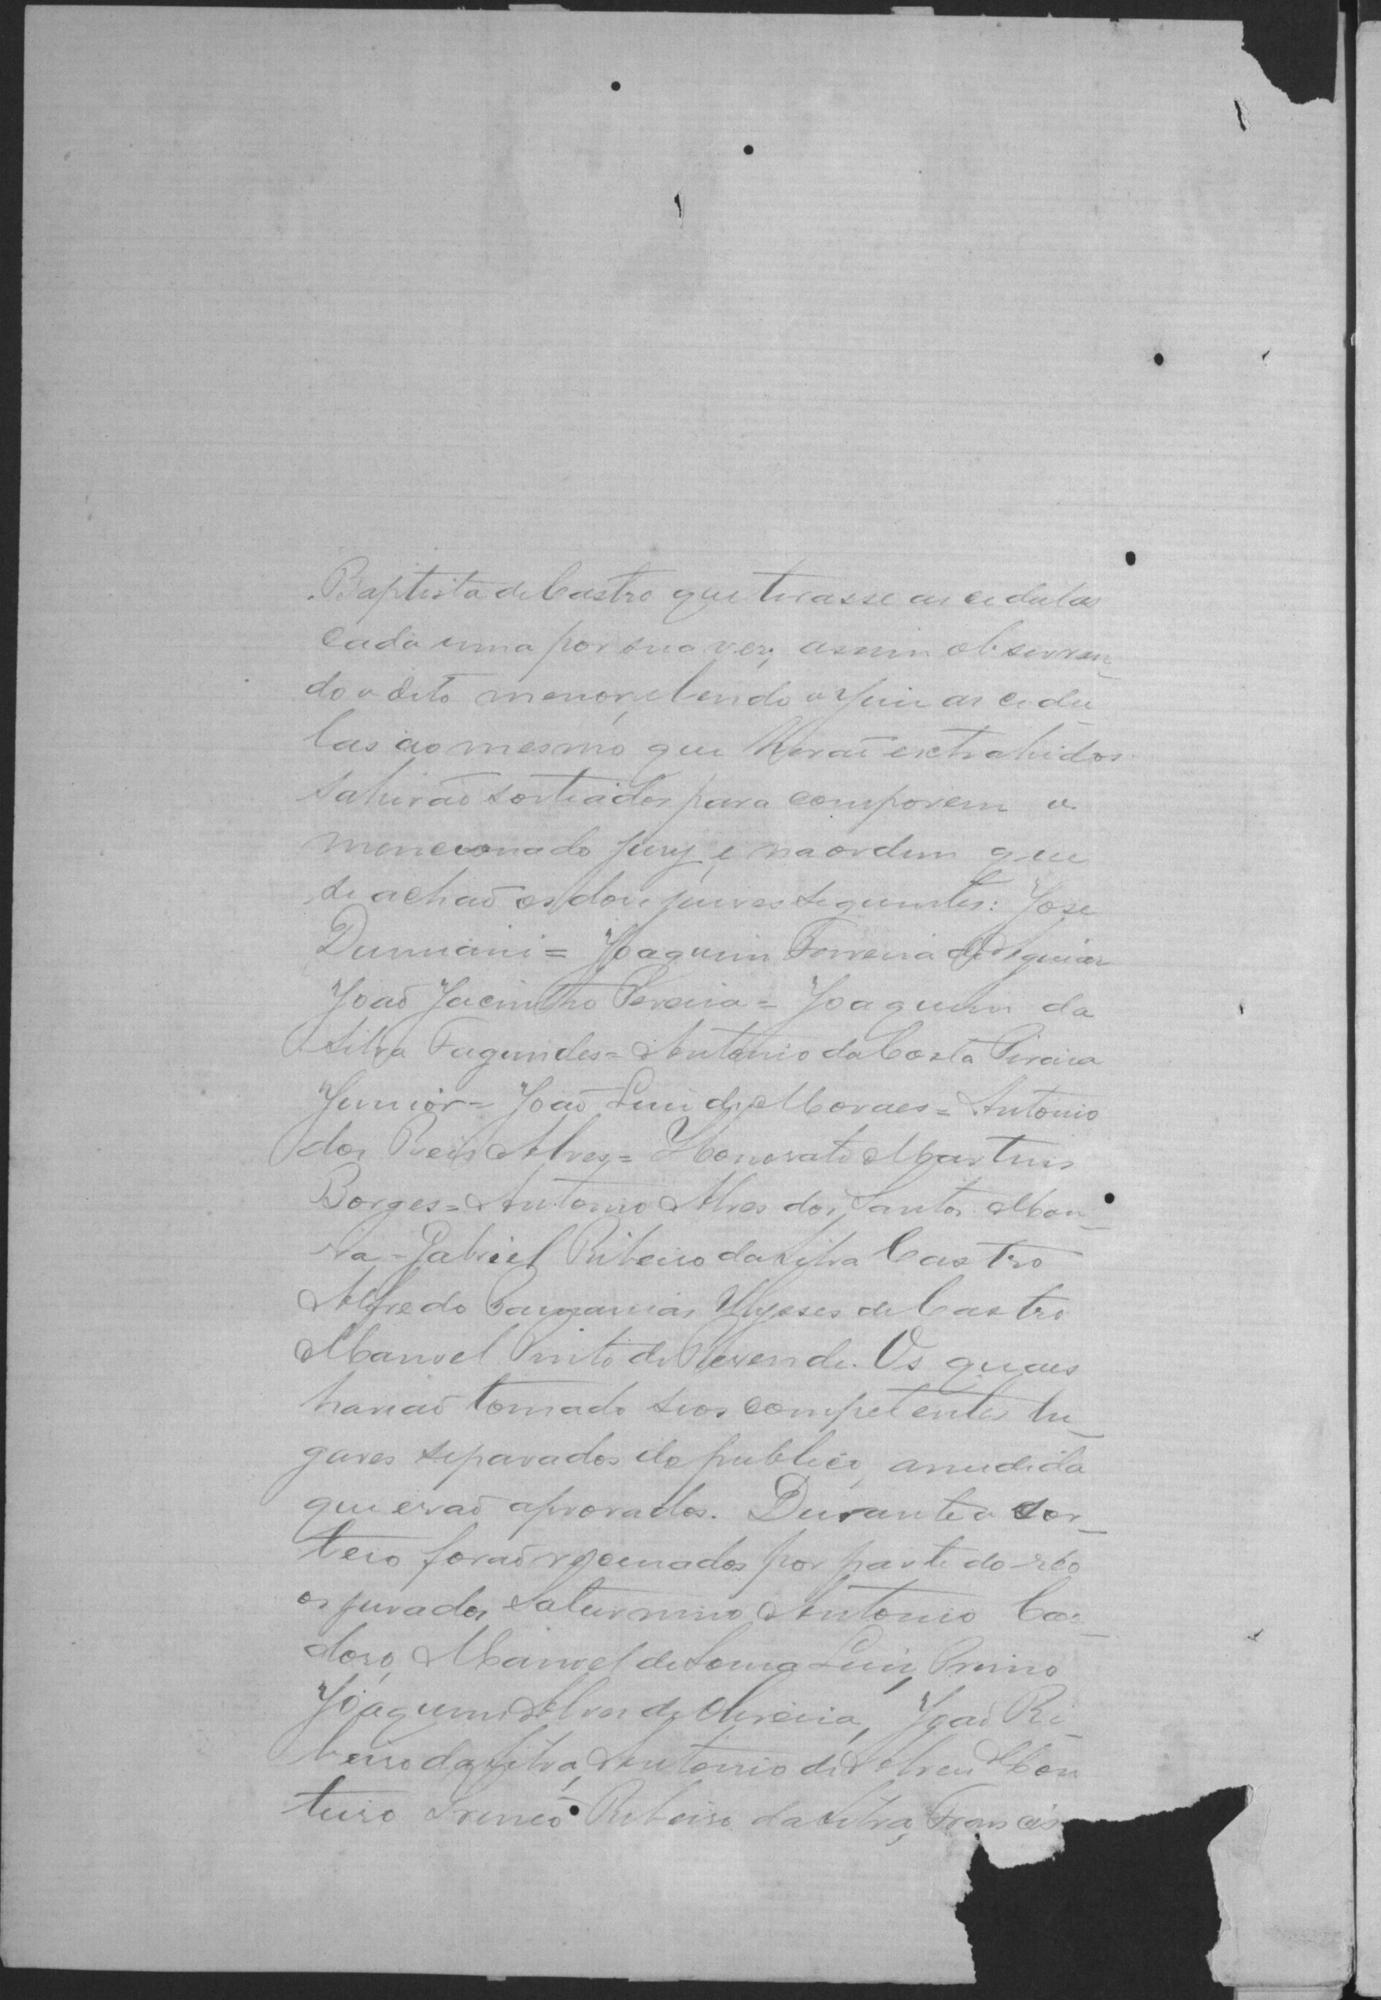 Baptista de Castro que tirasse as cedulas
cada uma por sua vez, assim observan_
do o dito menor, lendo o Juiz as cedu
las ao mesmo que herao extrahidos
sahirão sorteados para comporem o
mencionado jury, e na ordem que
se achaõ os doze juizes seguintes: Jose
Dumiani = Joaquim Ferreira de Aguiar
Joaõ Jacintho Pereira = Joaquim da
Silva Fagundes = Antonio da Costa Pereira
Junior = Joaõ Luiz de Moraes = Antonio
dos Reis Alves = Honorato Martins
Borges = Antonio Alves dos Santos Mou_
ra = Gabriel Ribeiro da Silva Castro
Alfredo Ulysses de Castro
Manoel Pinto de Rezende. Os quaes
haviaõ tomado seos competentes lu_
gares separados do publico, a medida
que eraõ aprovados. Durante o sor_
teio foraõ recusados por parte do réo
os jurados Saturnino Antonio Car_
doso, Manoel de Sousa Luiz, Primo
Joaquim Alves de Oliveira, Joaõ Ri_
beiro da Silva, Antonio de Abreu Mon
teiro Irineo Ribeiro da Silva, Francis